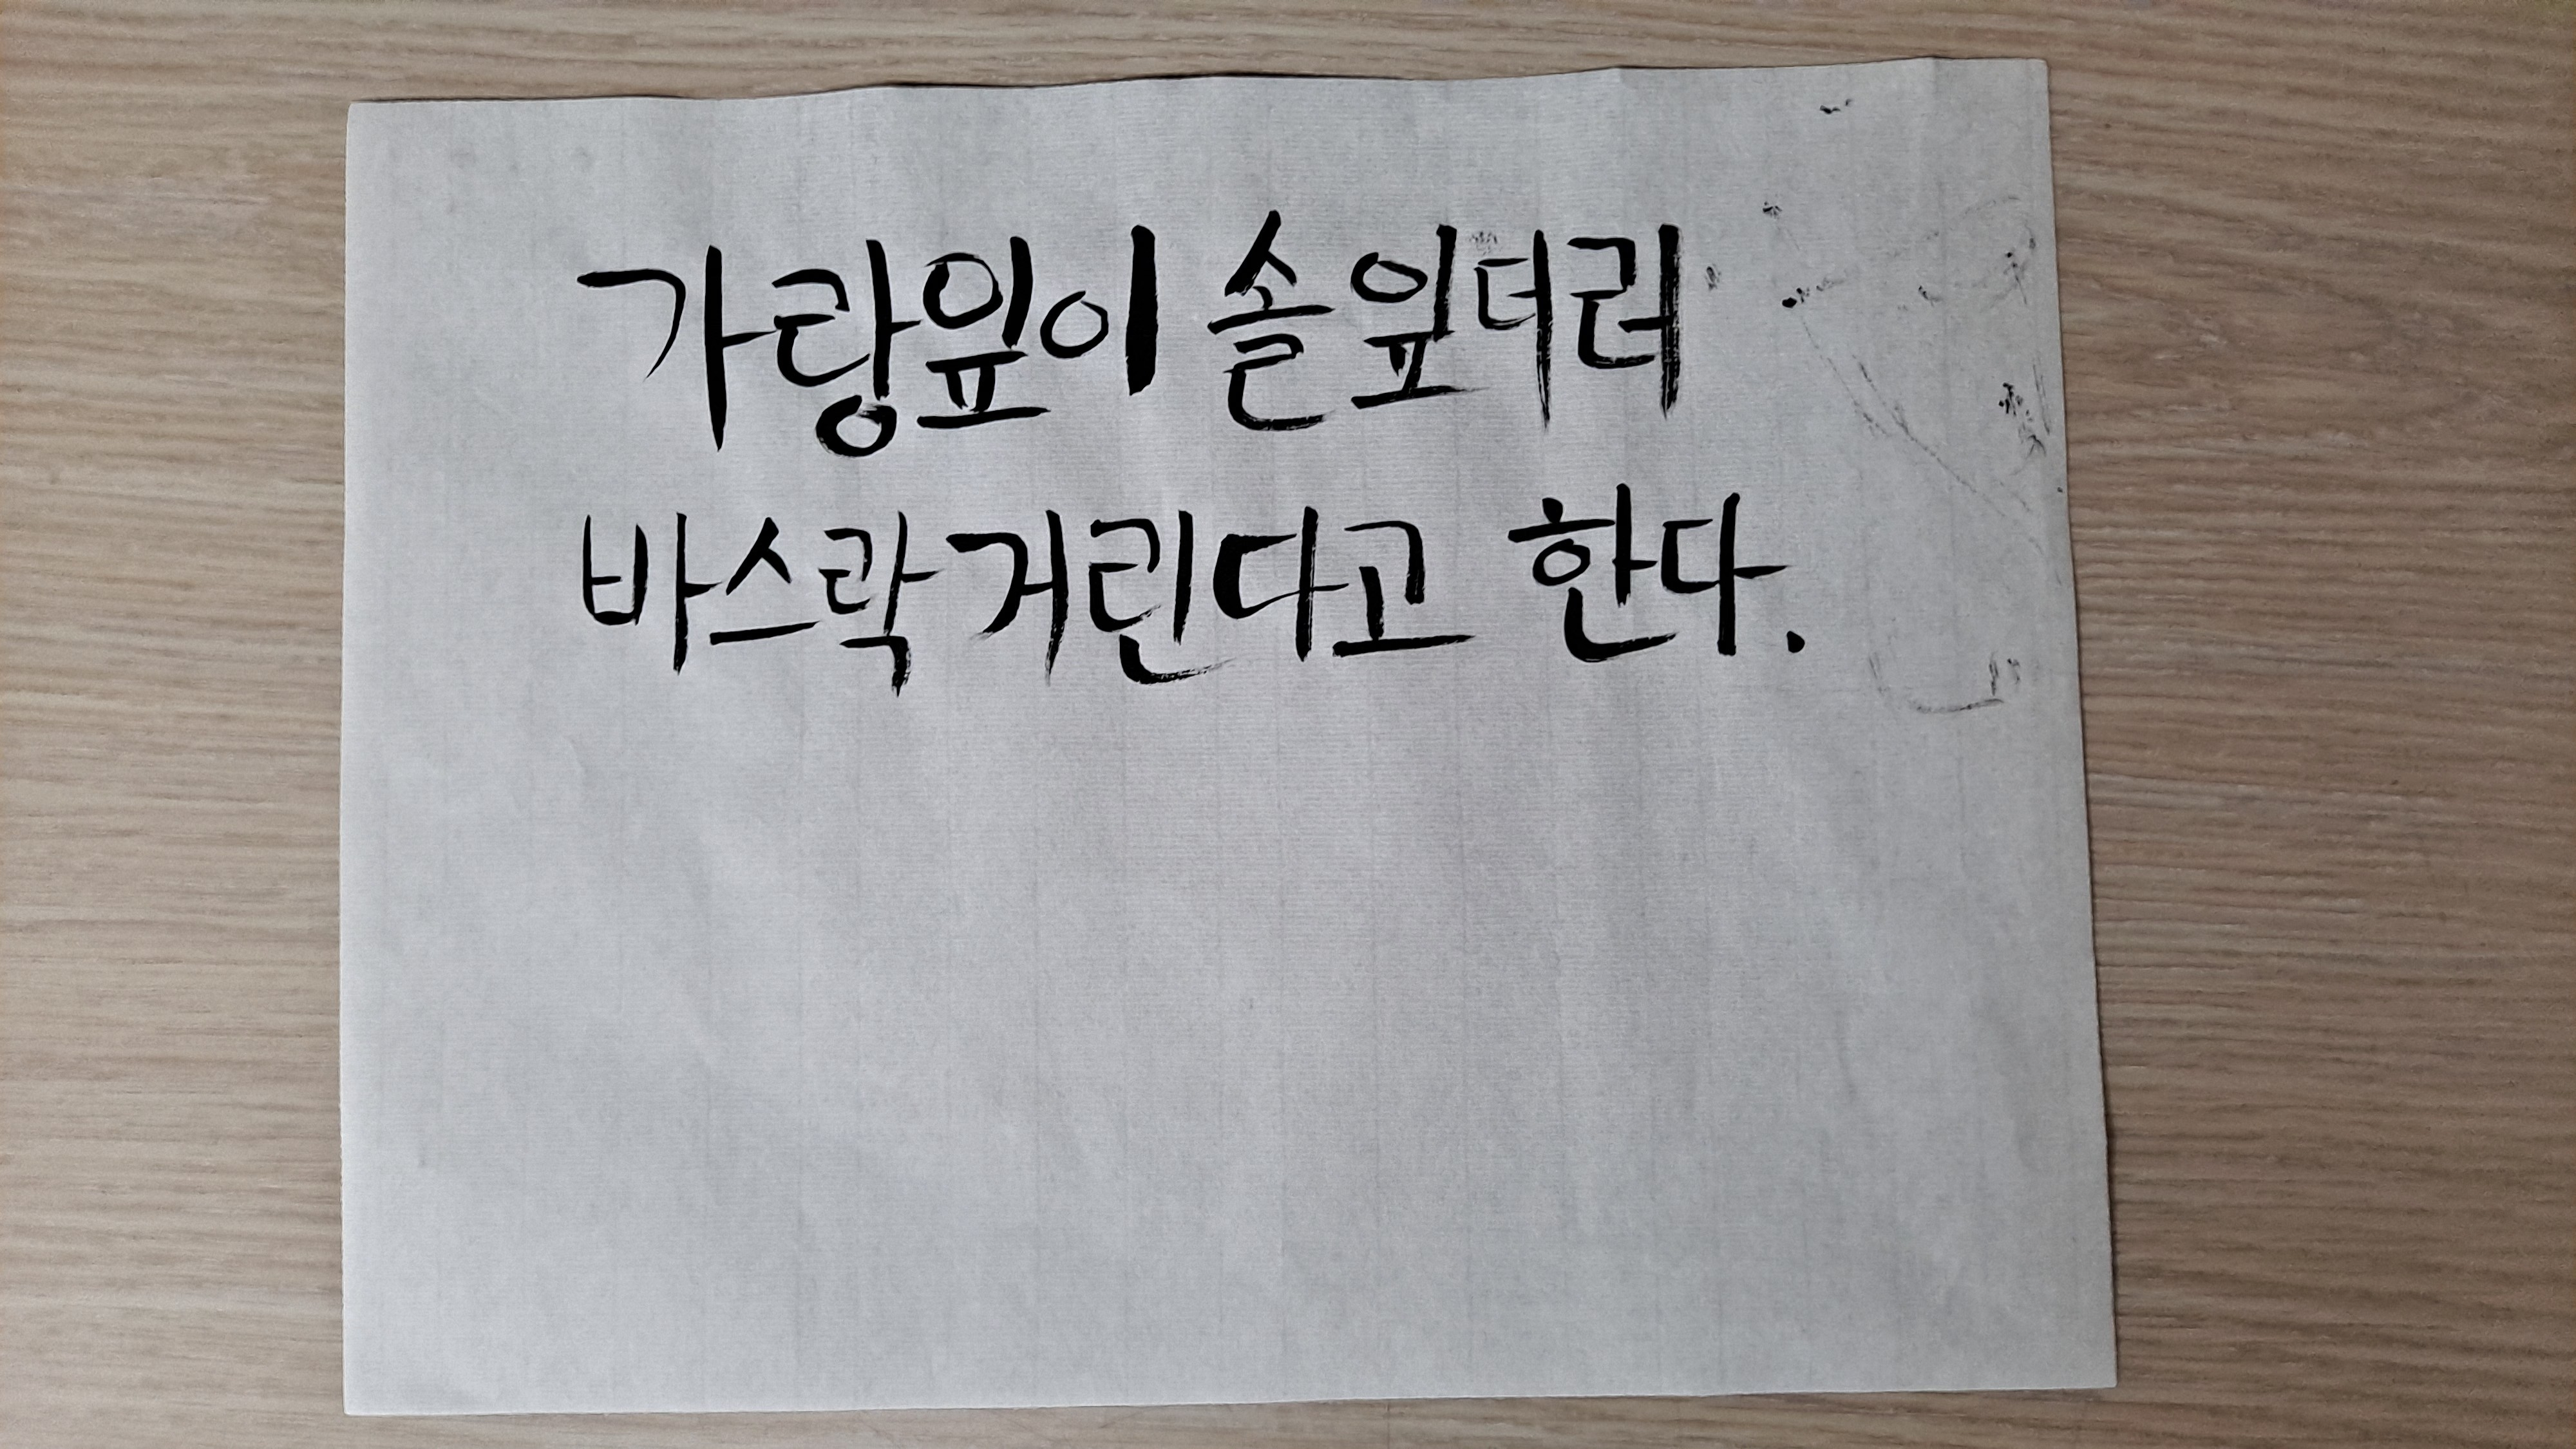 가랑잎이 솔잎더러
바스락거린다고 한다.